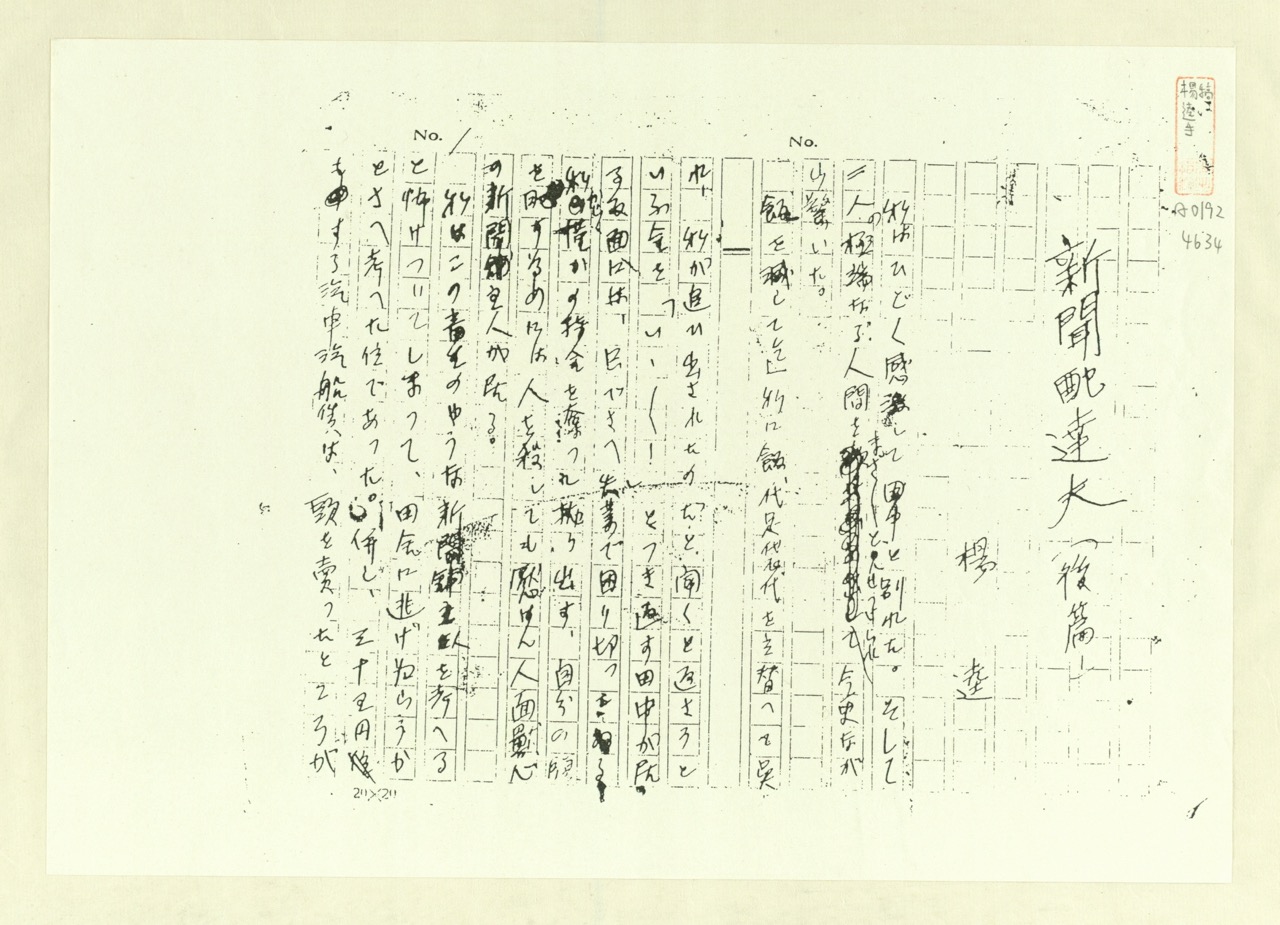 新聞配達夫(後篇)
楊 逵
私はひどく感激して田中と別れた。そして
二人の極端な人間をまざまざと見せられ今更なが
ら驚いた。
飯を減して迄 私に飯代足袋代を立替へて呉
れ、私が追ひ出されたのだと聞くと返さうと
いふ金を「いゝ〳〵!」とつき返す田中が居
る反面には、民でさへ失業で困り切つてゐる
私から僅かの持金を奪つれ抛り出す、自分の腹
を肥すためには人を殺しても厭はん人面獣心
の新聞舗主人が居る。
私はこのやうな新聞舗主人を考へる
と怖けついてしまつて、田舎に逃げ帰らうか
とさへ考へた位であつた。併し、三十五円
もする汽車汽船賃は、頭を売つたところが
No.
No.
20×20
A0192
4634
楊逵